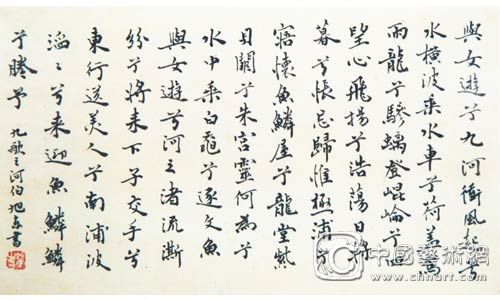 與女遊兮九河衝風起兮
水橫波乘水車兮荷蓋駕
兩龍兮驂螭登崐崘兮四
望心飛揚兮浩蕩日將
暮兮悵忘歸惟極浦兮
寤懷魚鱗屋兮龍堂紫
貝闕兮朱宮靈何為兮
水中乘白黿兮逐文魚
與女遊兮河之渚流澌
紛兮將来下子交手兮
東行送美人兮南浦波
滔々兮来迎魚鱗鱗
兮媵予 九歌之河伯 旭东書
中国艺术网
www.chnart.com